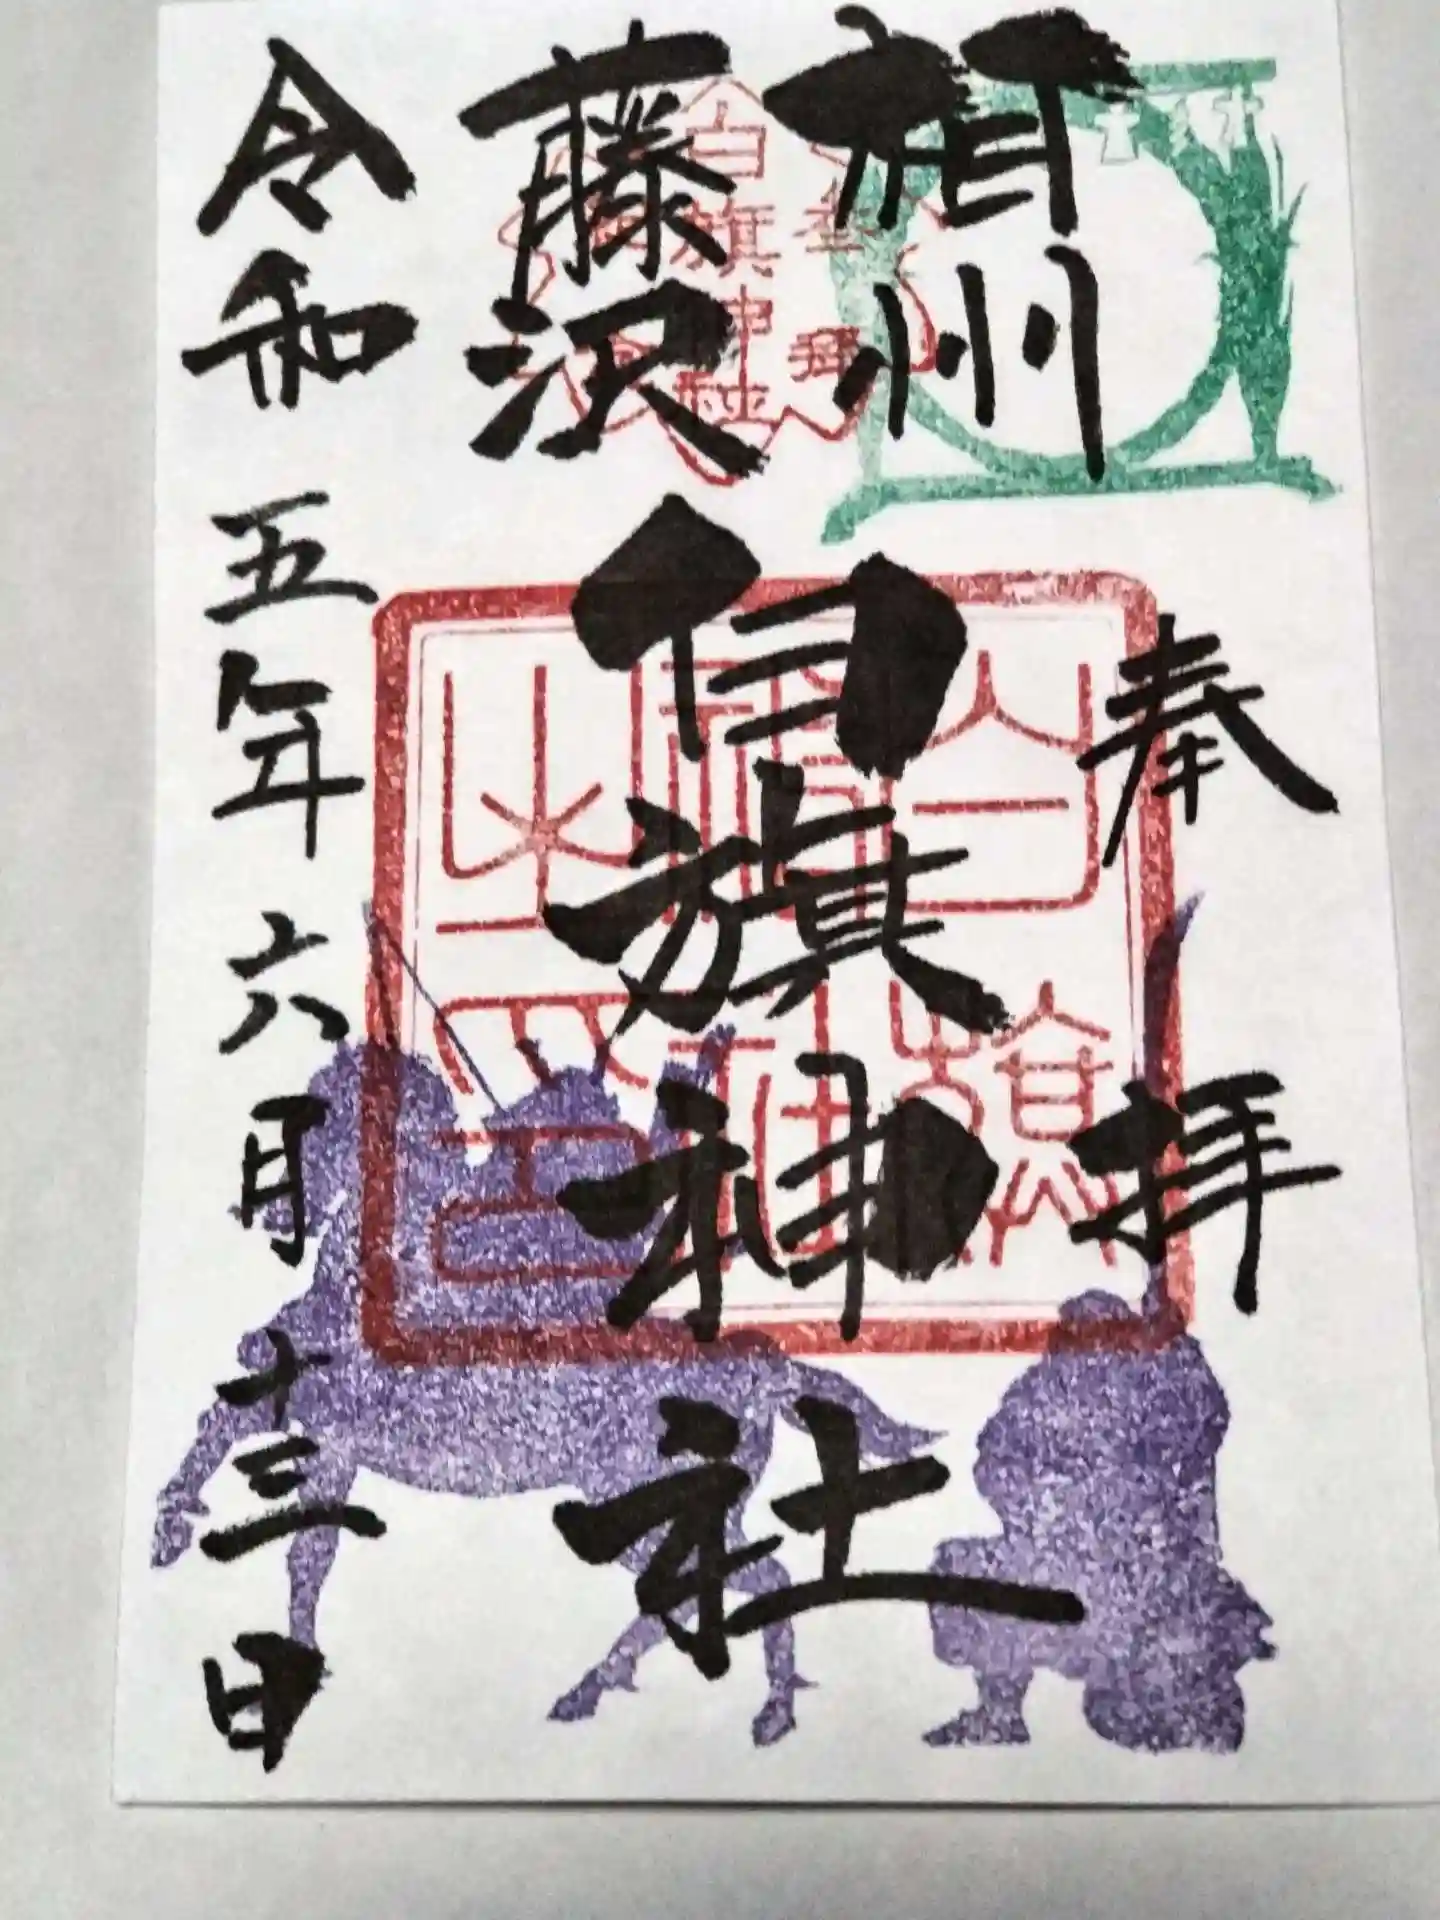 相州
藤沢
奉拝
白旗神社
令和五年六月十三日
参拝
白旗神社
白旗神社之印